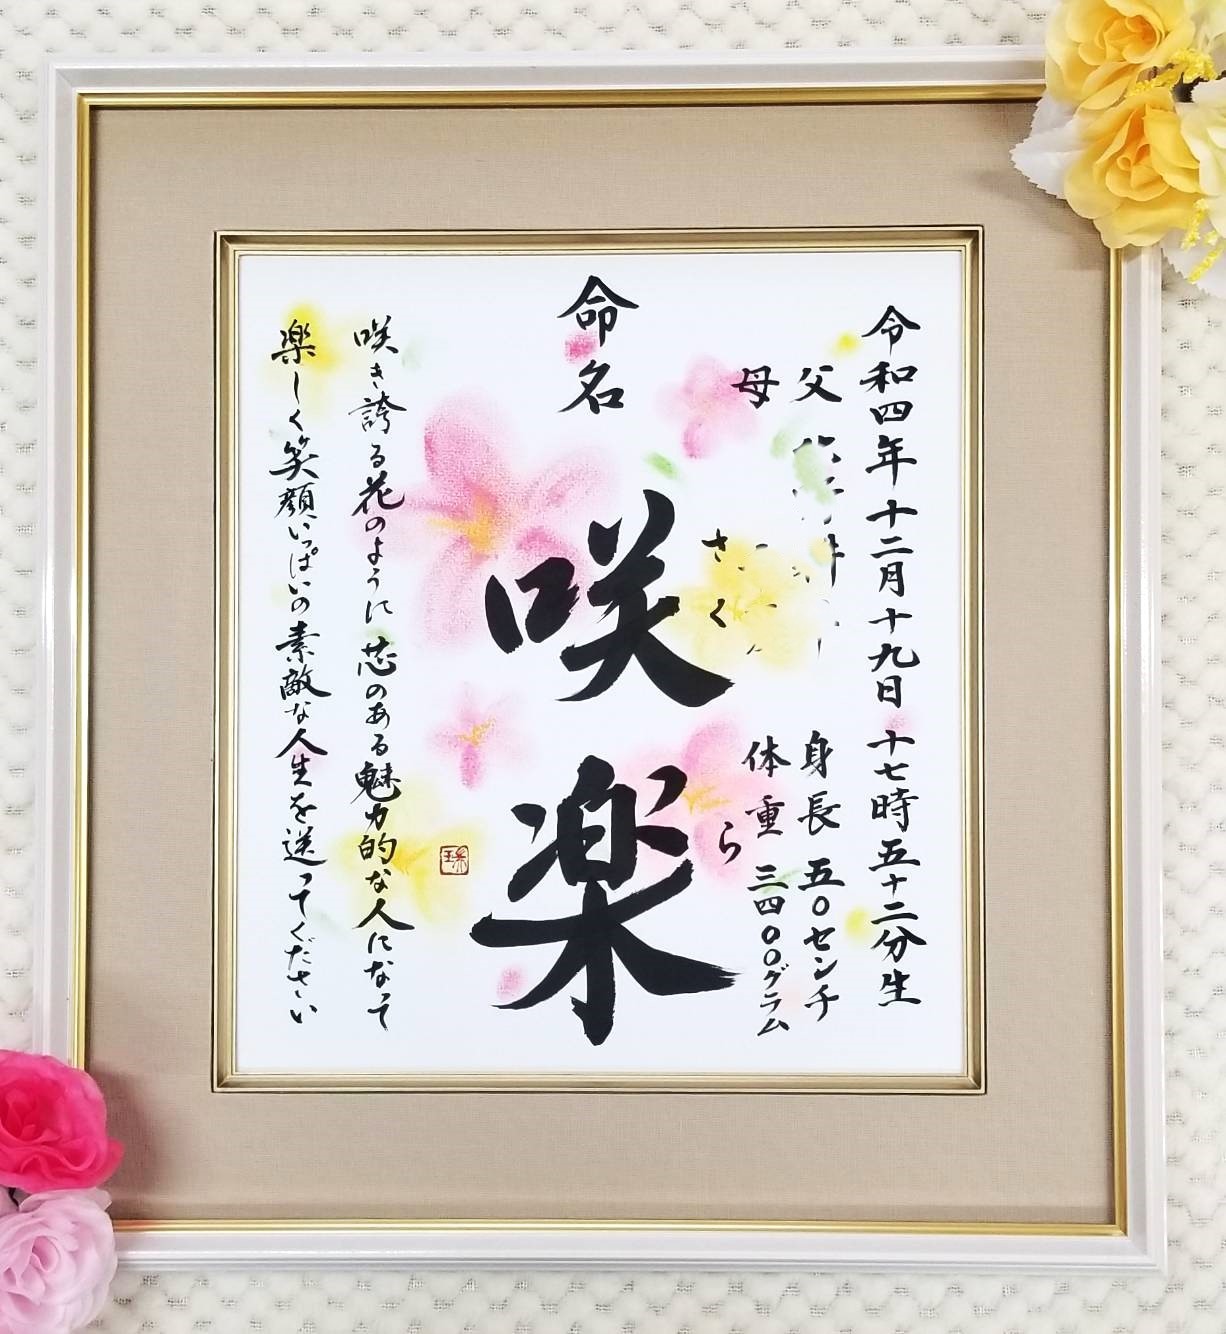 令和四年十二月十九日 十七時五十二分生
父
母
身長 五〇センチ
体重 三四〇〇グラム
命名
咲楽
さく
ら
咲き誇る花のように 芯のある魅力的な人になって
楽しく笑顔いっぱいの素敵な人生を送ってください